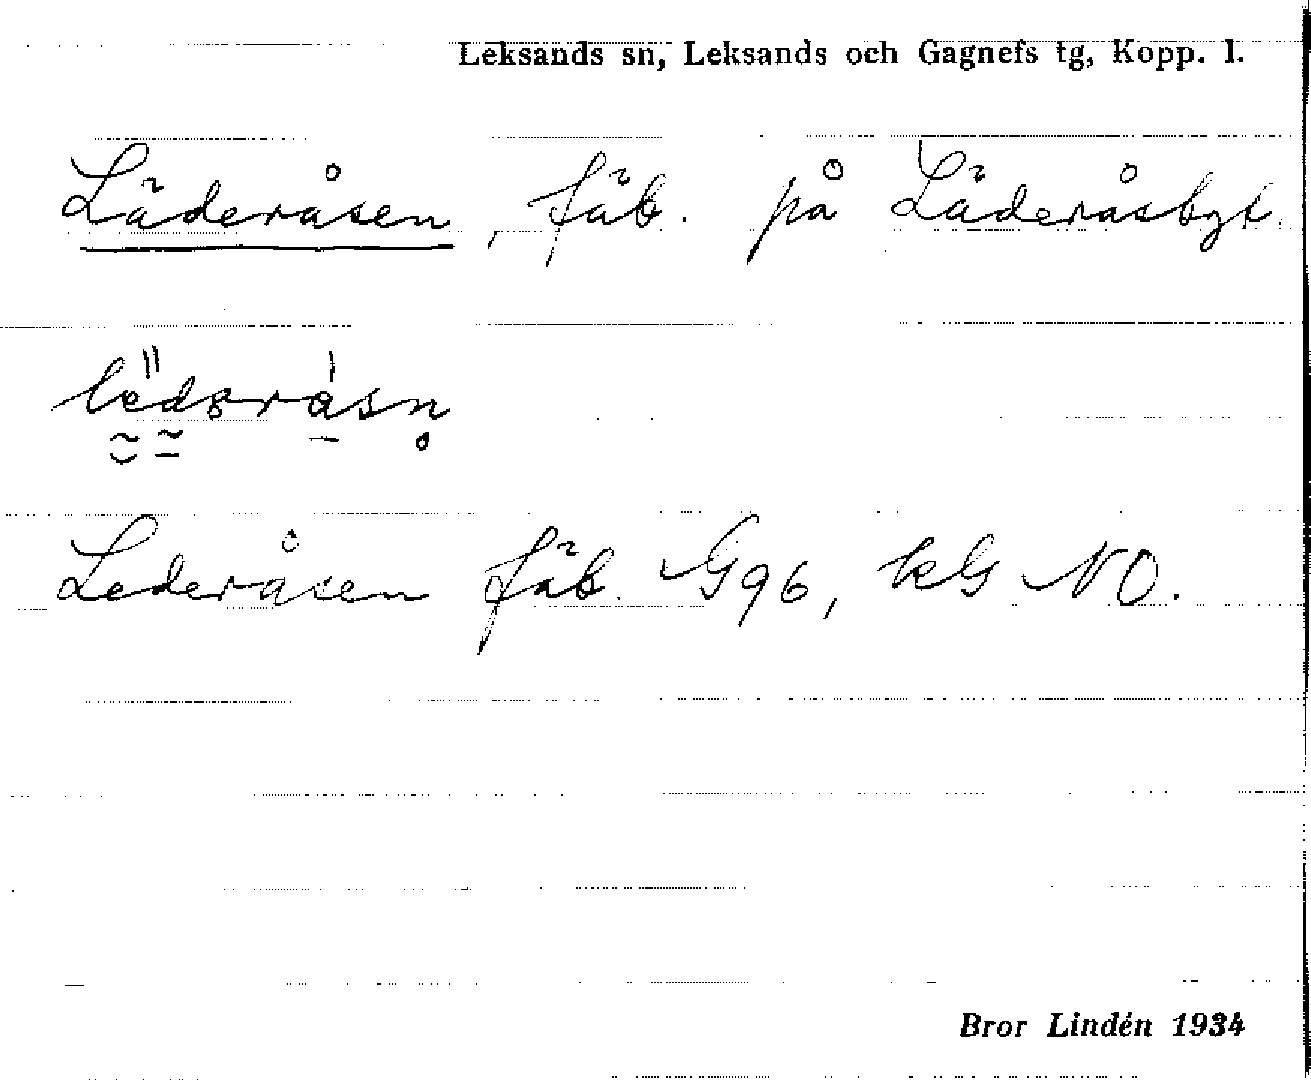 Leksands sn, Leksands och Gagnefs tg, Kopp. l.
Läderåsen, fäb. på Läderåsbyt.
Lederåsen fäb. G96, kG NO.
Bror Lindén 1934